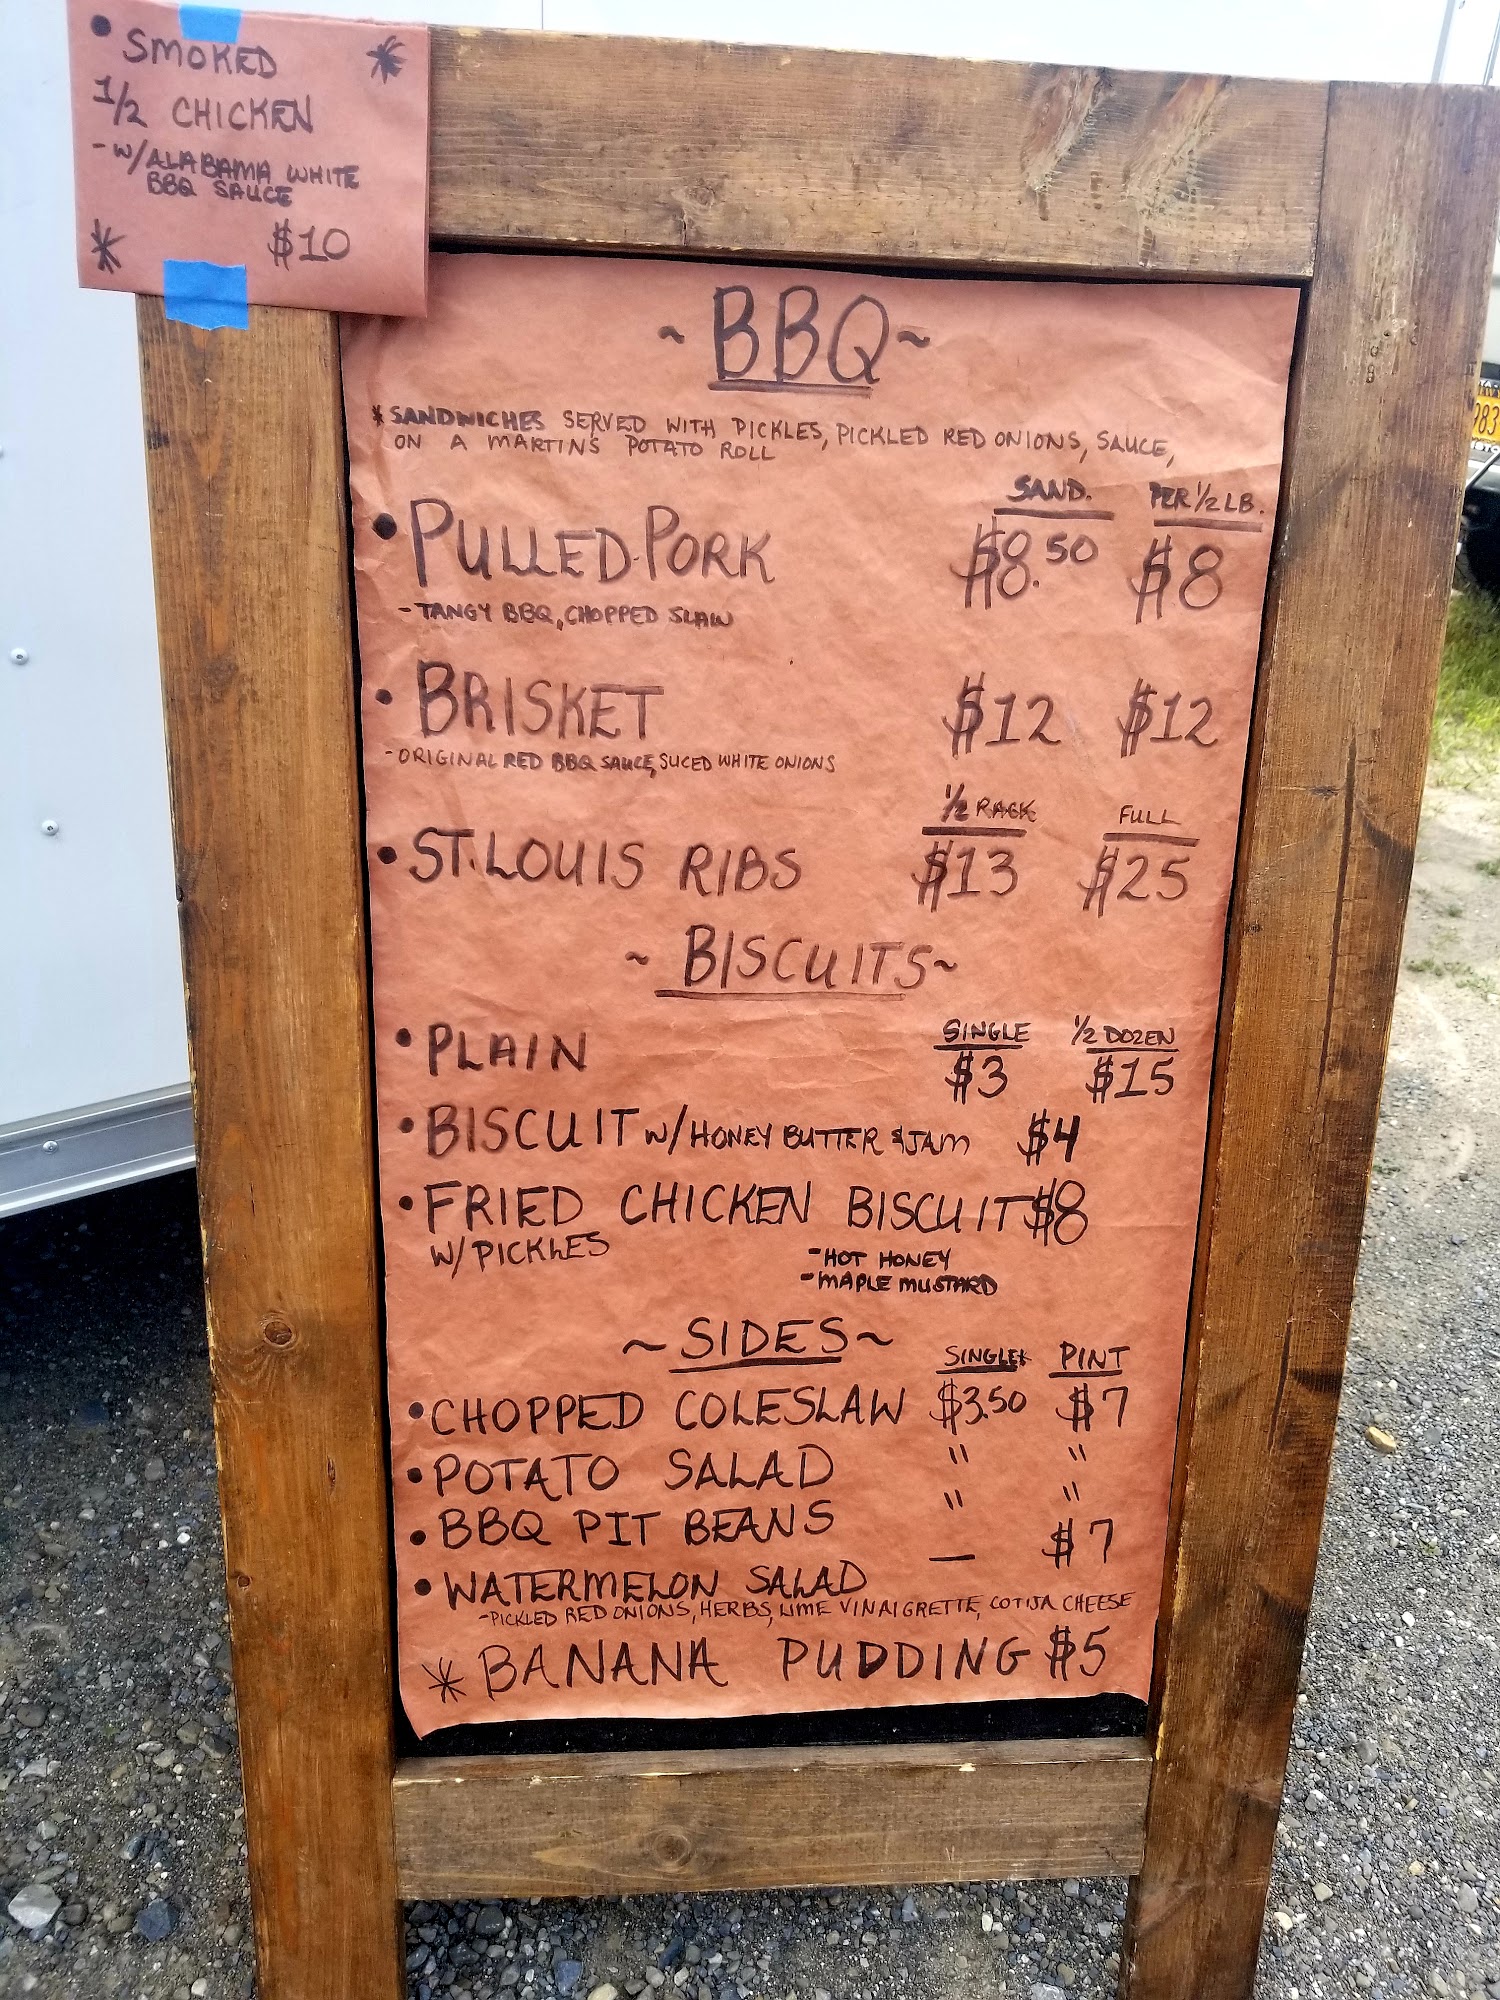 • SMOKED *
1/2 CHICKEN
- W/ALABAMA WHITE
BBQ SAUCE
* $10
~BBQ~
*SANDWICHES SERVED WITH PICKLES, PICKLED RED ONIONS, SAUCE,
ON A MARTINS POTATO ROLL
SAND. PER 1/2 LB.
• PULLED PORK $8.50 $8
- TANGY BBQ, CHOPPED SLAW
• BRISKET $12 $12
- ORIGINAL RED BBQ SAUCE, SLICED WHITE ONIONS
1/2 RACK FULL
• ST. LOUIS RIBS $13 $25
~ BISCUITS~
SINGLE 1/2 DOZEN
• PLAIN $3 $15
• BISCUIT W/HONEY BUTTER & JAM $4
• FRIED CHICKEN BISCUIT $8
W/PICKLES
- HOT HONEY
- MAPLE MUSTARD
~SIDES~
SINGLE PINT
• CHOPPED COLESLAW $3.50 $7
• POTATO SALAD " "
• BBQ PIT BEANS " "
• WATERMELON SALAD — $7
-PICKLED RED ONIONS, HERBS, LIME VINAIGRETTE, COTIJA CHEESE
* BANANA PUDDING $5
983